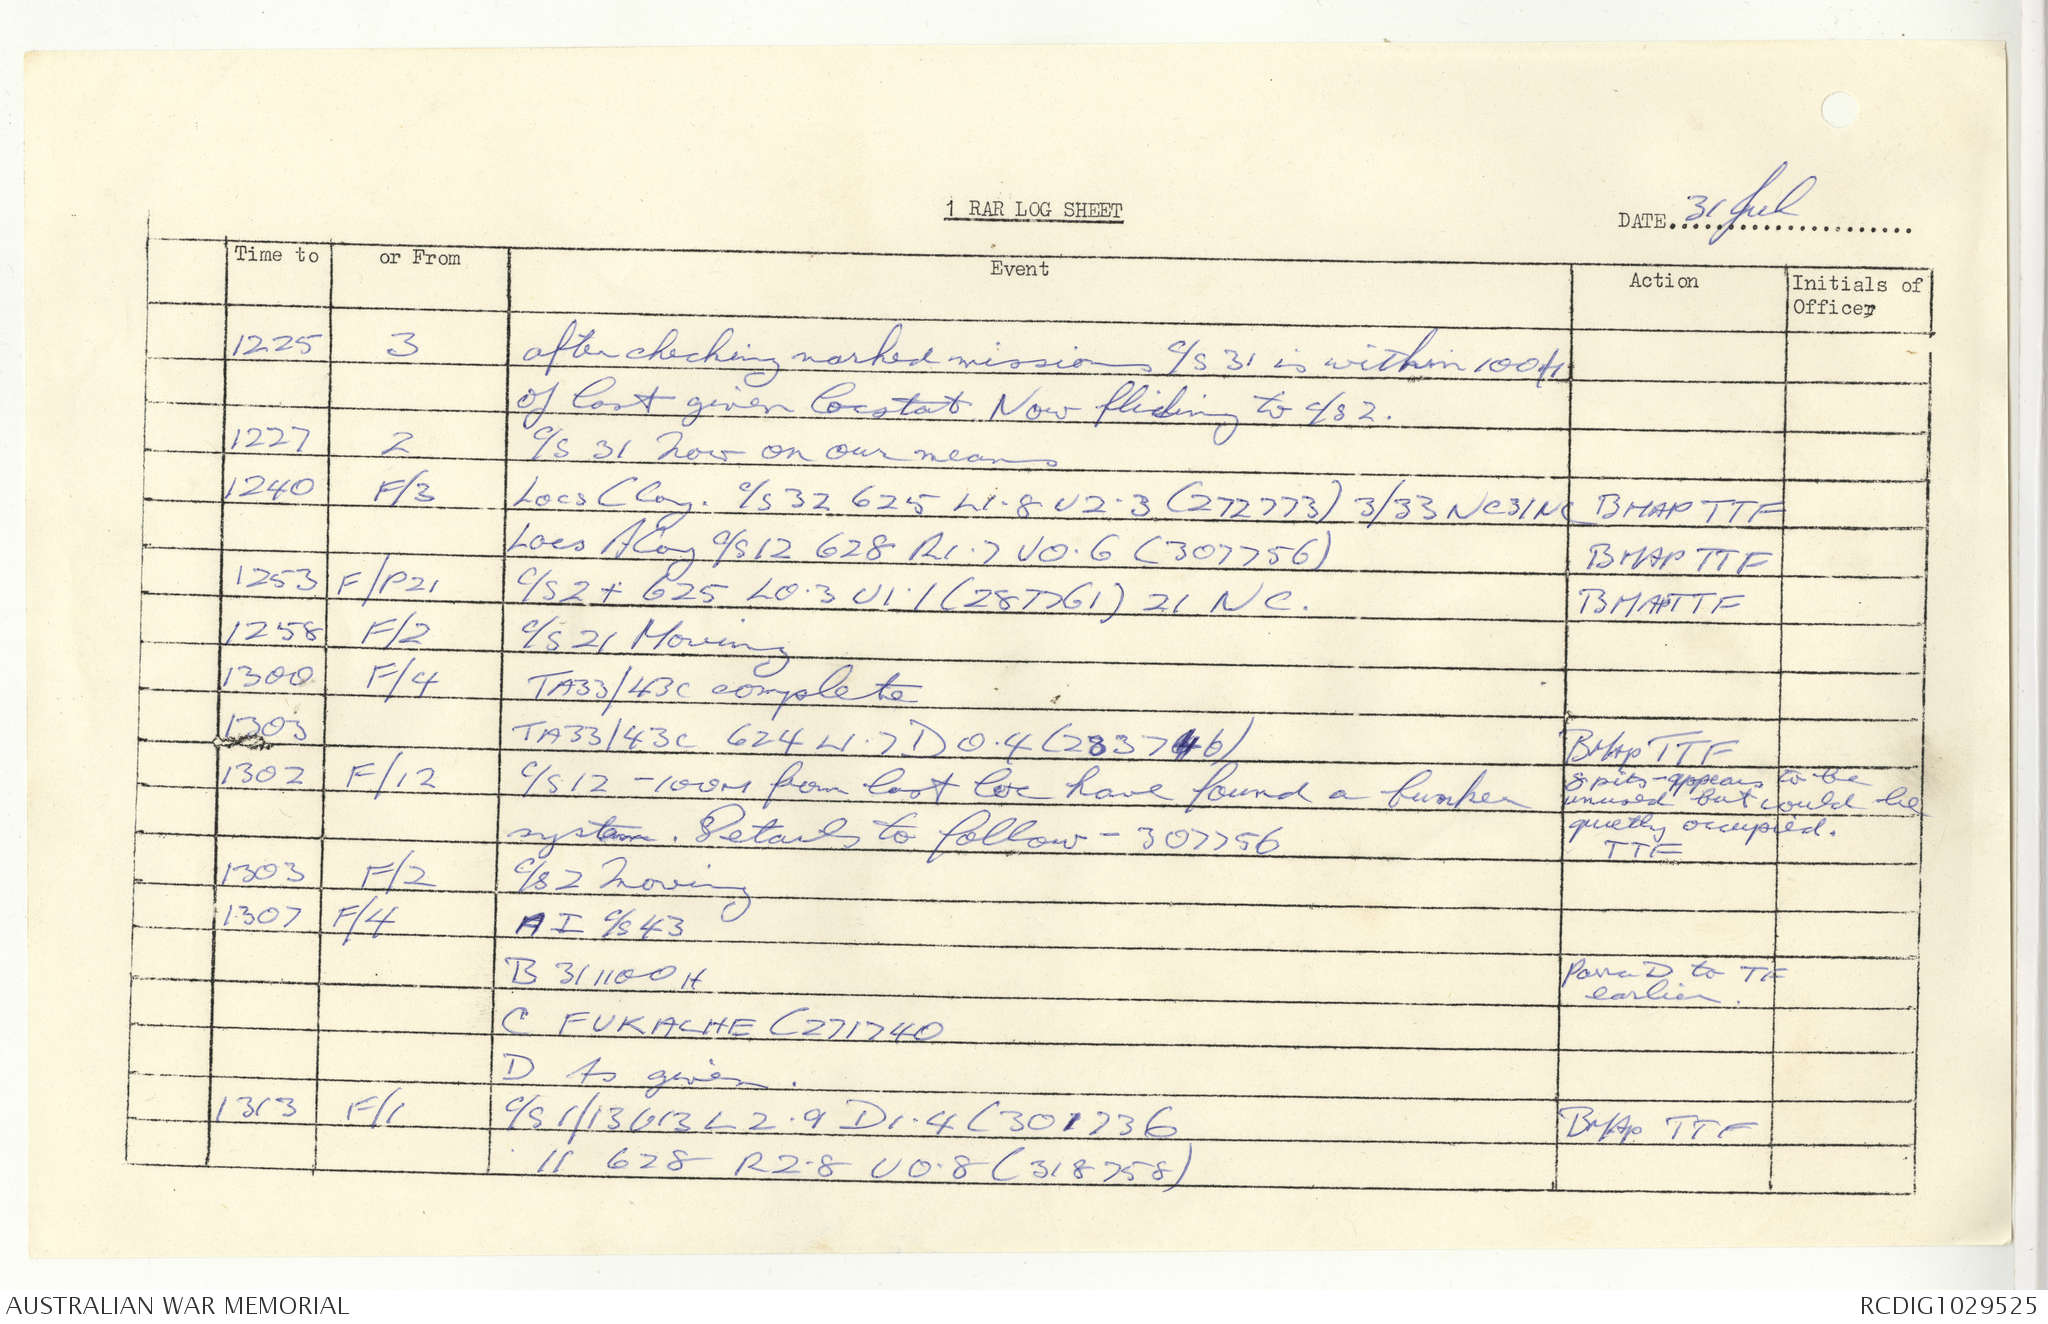 1 RAR LOG SHEET
DATE 31 Jul
Time to or From Event Action Initials of Officer
1225 3 after checking marked missions C/S 31 is within 100M
of last given locstat Now fliding to C/S 2.
1227 2 C/S 31 now on our means
1240 F/3 Locs C Coy. C/S 32 625 L1.8 U2.3 (272773) 3/33 NC 31 NC BMAP TTF
Locs A Coy C/S 12 628 R1.7 U0.6 (307756) BMAP TTF
1253 F/P21 C/S 2+ 625 L0.3 U1.1 (287761) 21 NC. BMAP TTF
1258 F/2 C/S 21 Moving
1300 F/4 TA33/43C complete
1303 TA33/43C 624 L1.7 D0.4 (283746) BMAP TTF
1302 F/12 C/S 12 - 100M from last loc have found a bunker
system. Details to follow - 307756
8 pits - appears to be
unused but could be
quietly occupied.
TTF
1303 F/2 C/S 2 moving
1307 F/4 A I C/S 43
B 311100H Para D to TF
earlier.
C FUKACHE (271740
D As given.
1313 F/1 C/S 1/13 613 L2.9 D1.4 (301736 BMAP TTF
11 628 R2.8 U0.8 (318758)
AUSTRALIAN WAR MEMORIAL
RCDIG1029525